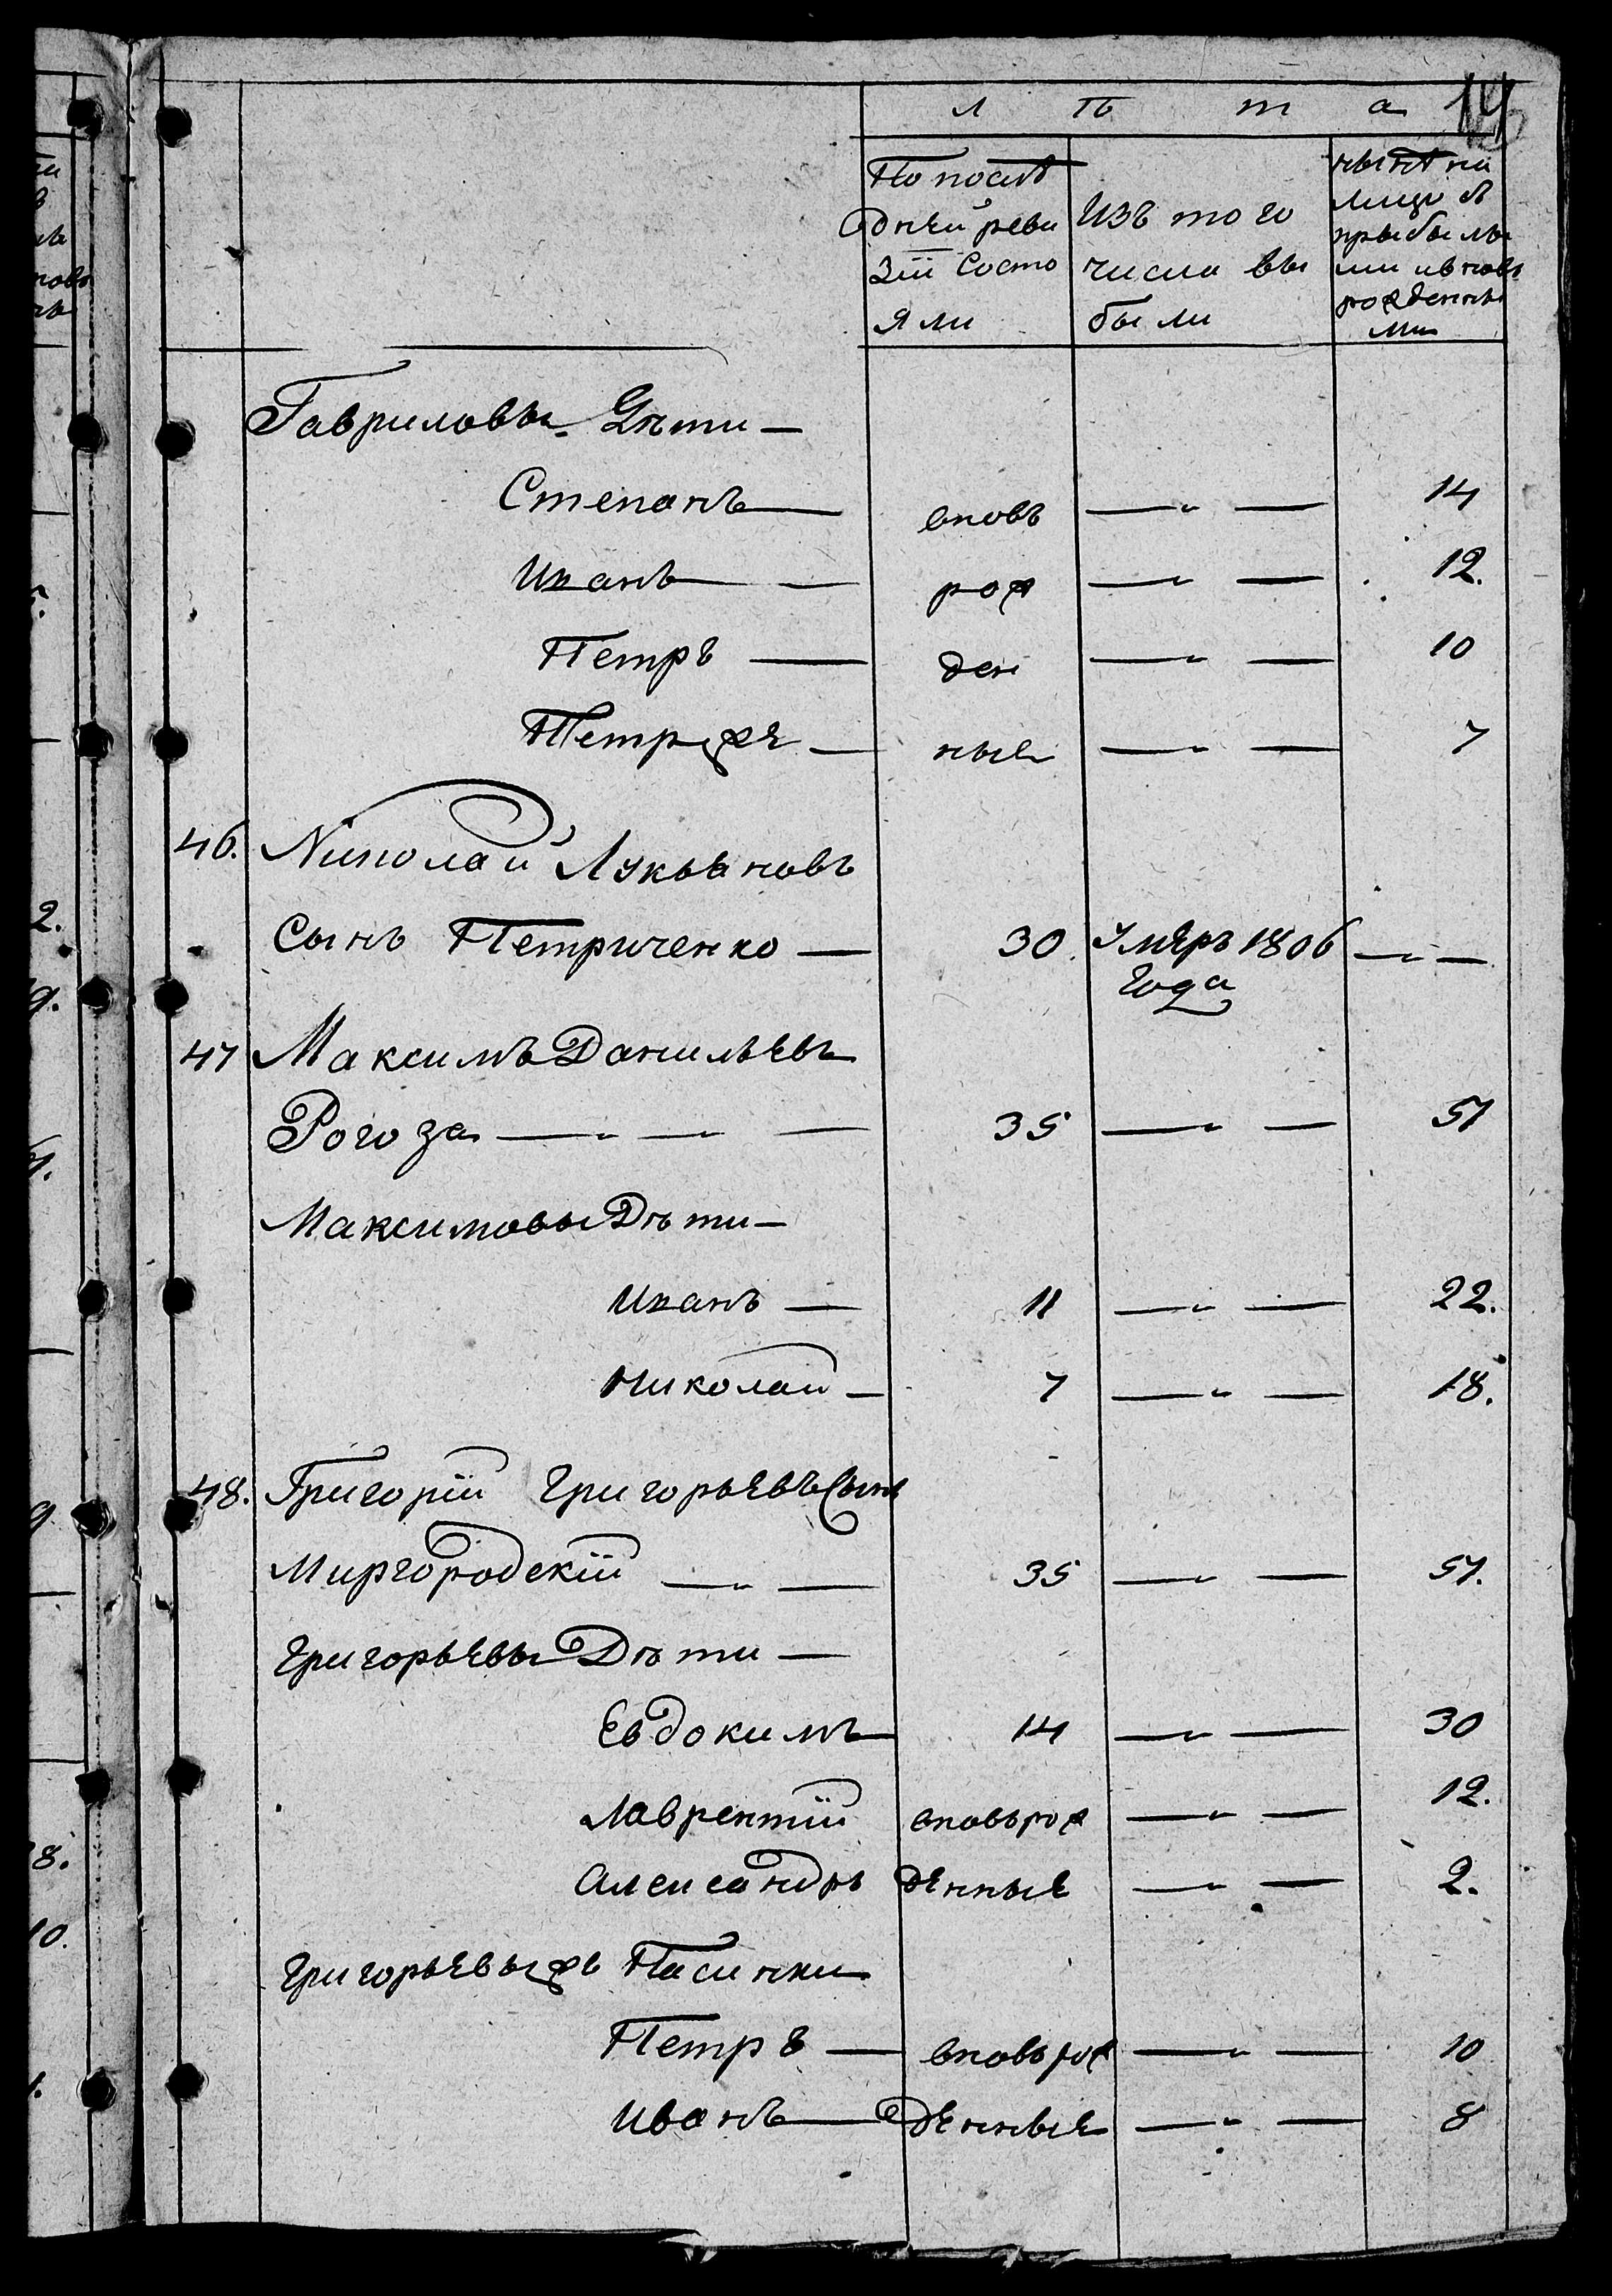 лѣта 14
По послѣ
дней реви
зіи Состо
яли
Изъ того
числа вы
были
нынѣ на
лицо съ
прыбылы
ми и вновь
рожденны
ми
Гавриловы Дѣти —
Степанъ — вновъ — „ — 14
Иванъ — — рож — „ — 12.
Петръ — ден — „ — 10
— ные — „ — 7
46. Николай Лукьяновъ
Сынъ Петриченко — 30. Умеръ 1806 — „ —
Года
47 Максимъ Данильевъ
Рогоза — „ — „ — 35 — „ — 51
Максимовы Дѣти —
Иванъ — 11 — „ — 22.
Николай — 7 — „ — 18.
48. Григорій Григорьевъ Сынъ
Миргородскій — „ — 35 — „ — 51.
Григорьевы Дѣти —
Евдокимъ — 14 — „ — 30
Лаврентій вновьрож — „ — 12.
Александръ денные — „ — 2.
Григорьевыхъ Пасинки
Петръ — вновь рож — „ — 10
Иванъ — денные — „ — 8